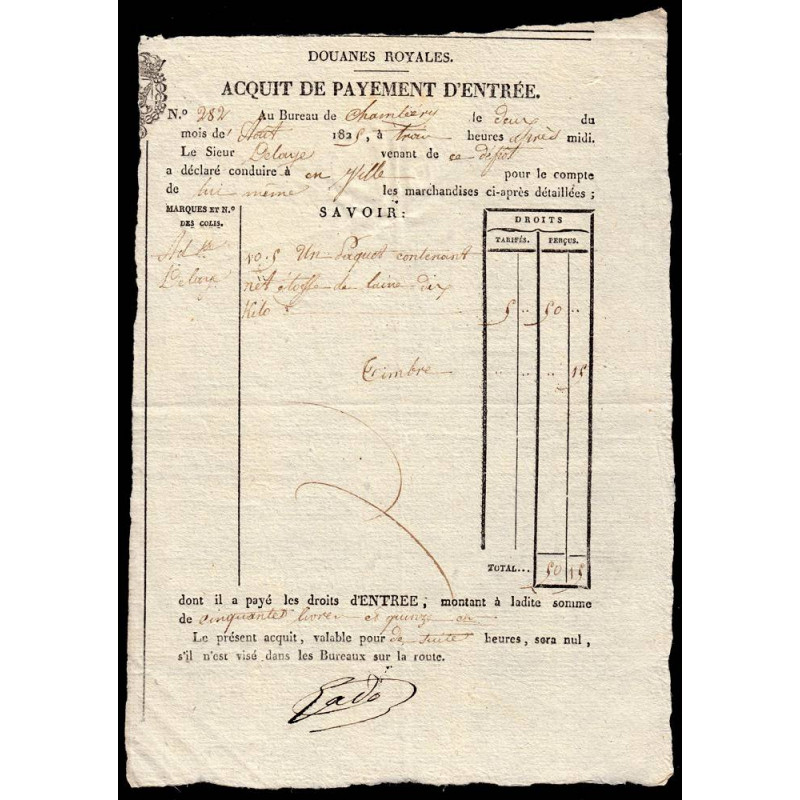 DOUANES ROYALES.
ACQUIT DE PAYEMENT D'ENTRÉE.
N.º 282 Au Bureau de Chambéry le deux du
mois de Aout 1825, à trois heures après midi.
Le Sieur Delaye venant de ce dépot
a déclaré conduire à en Ville pour le compte
de lui même les marchandises ci-après détaillées ;
MARQUES ET N.º
DES COLIS.
SAVOIR :
DROITS
TARIFÉS. PERÇUS.
Delaye
Un Paquet contenant
net étoffe de laine dix
Kilo 5 .. 50 ..
Timbre .. .. .. 15
TOTAL... 50 15
dont il a payé les droits d'ENTREE ; montant à ladite somme
de cinquante livres et quinze
Le présent acquit, valable pour de suite heures, sera nul,
s'il n'est visé dans les Bureaux sur la route.